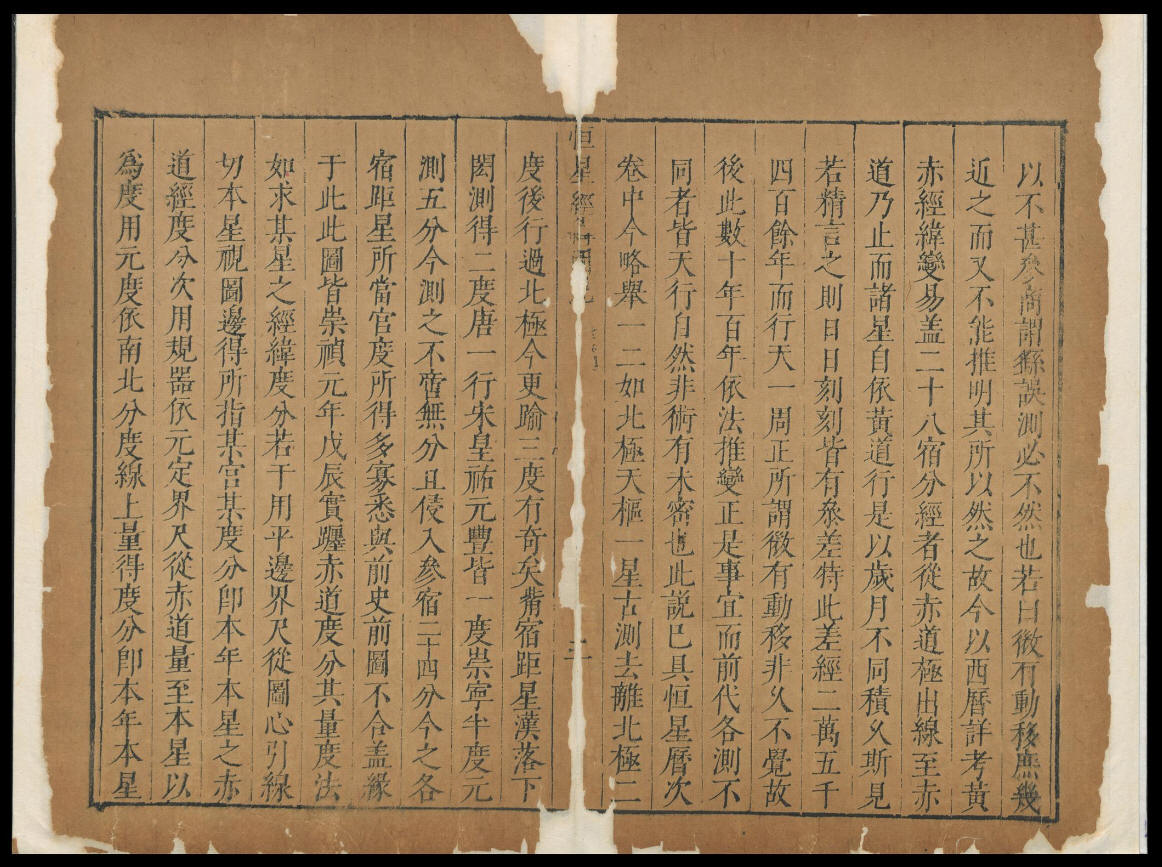 以不甚參商謂繇誤測必不然也若曰微有動移庶幾
近之而又不能推明其所以然之故今以西曆詳考黃
赤經緯變易盖二十八宿分經者從赤道極出線至赤
道乃止而諸星自依黃道行是以歲月不同積久斯見
若精言之則日日刻刻皆有叅差特此差經二萬五千
四百餘年而行天一周正所謂微有動移非久不覺故
後此數十年百年依法推變正是事宜而前代各測不
同者皆天行自然非術有未密也此説已具恒星曆次
卷中今略舉一二如北極天樞一星古測去離北極二
恒星經緯圖說
三
度後行過北極今更踰三度有奇矣觜宿距星漢落下
閎測得二度唐一行宋皇祐元豐皆一度崇寧半度元
測五分今測之不啻無分且侵入參宿二十四分今之各
宿距星所當宮度所得多寡悉與前史前圖不合盖緣
于此此圖皆崇禎元年戊辰實躔赤道度分其量度法
如求某星之經緯度分若干用平邊界尺從圖心引線
切本星視圖邊得所指某宮某度分卽本年本星之赤
道經度分次用規器依元定界尺從赤道量至本星以
爲度用元度依南北分度線上量得度分卽本年本星